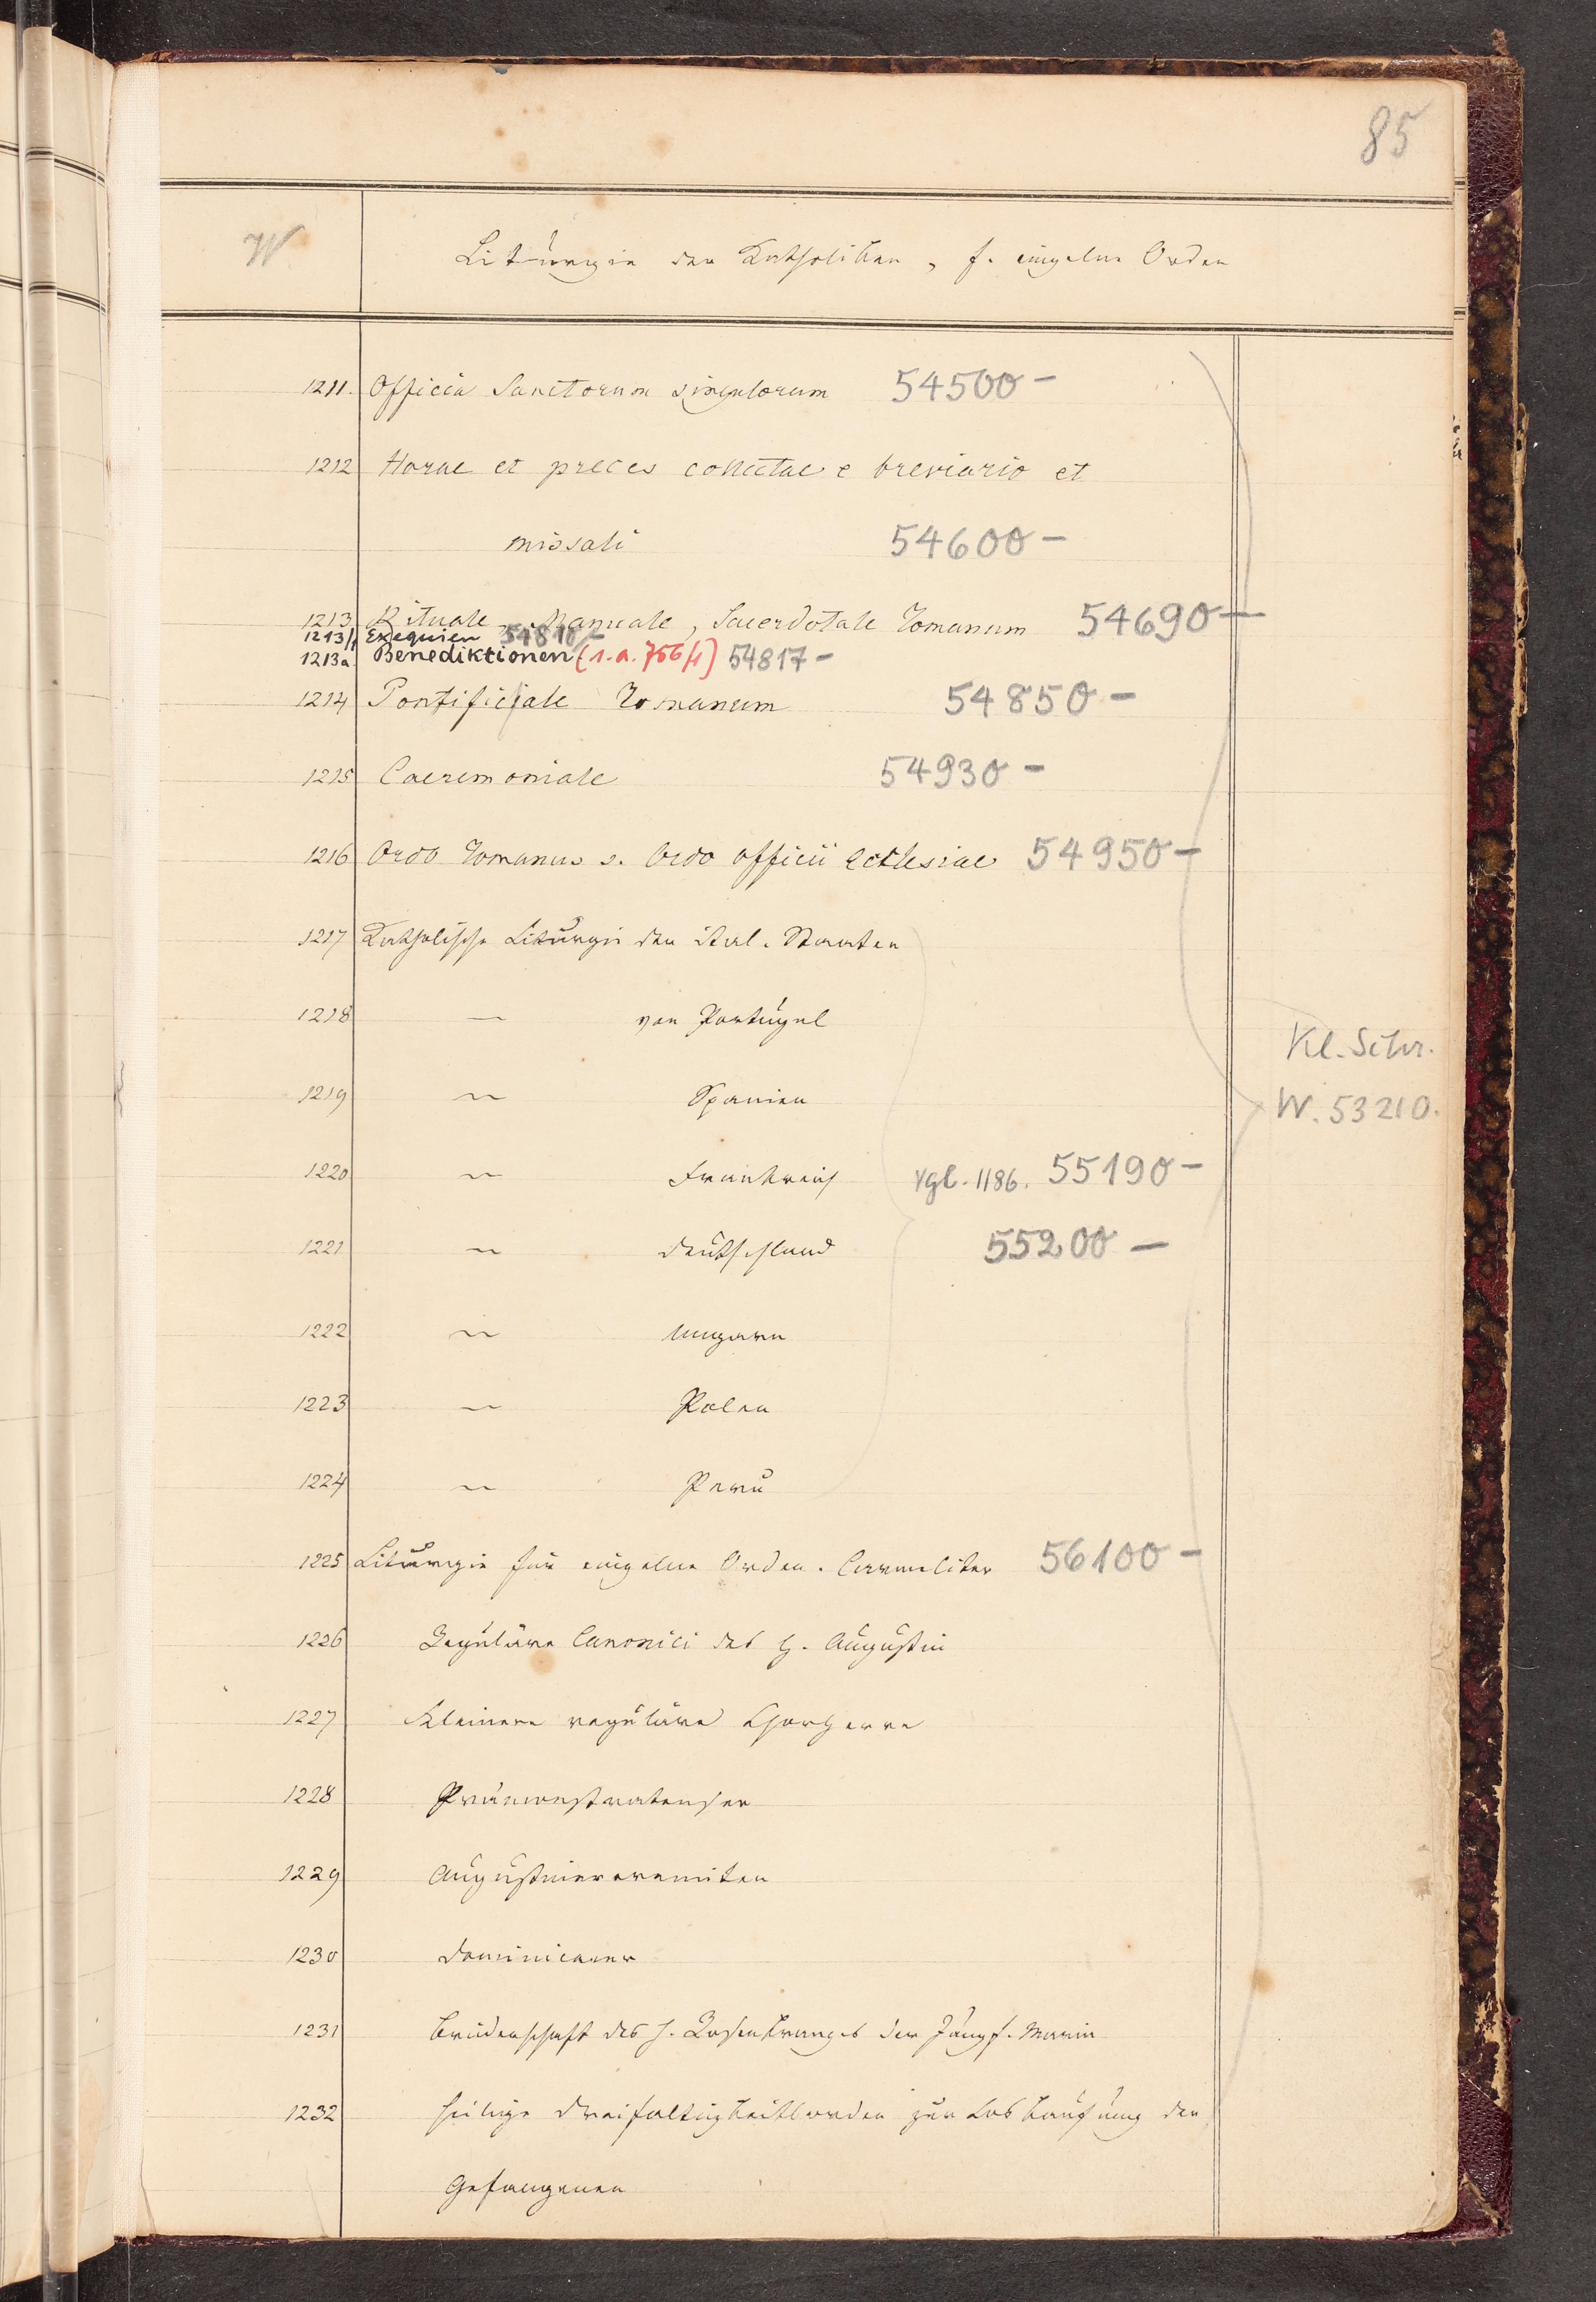 85
W
Liturgie der Katholiken, f. einzelne Orden
1211. Officia Sanctorum singulorum 54500 -
1212 Horae et preces collectae e breviario et
missali 54600 -
1213 Rituale, Manuale, Sacerdotale Romanum 54690 -
1213/1 Exequien 54810/-
1213a Benediktionen (s.a. 756/1) 54817 -
1214 Pontificiale Romanum 54850 -
1215 Caeremoniale 54930 -
1216 Ordo Romanus s. Ordo officii ecclesiae 54950 -
1217 Katholische Liturgie der ital. Staaten
1218 — von Portugal
1219 ~ Spanien
1220 ~ Frankreich vgl. 1186. 55190 -
1221 ~ Deutschland 55200 -
1222 ~ Ungarn
1223 ~ Polen
1224 ~ Peru
1225 Liturgie für einzelne Orden. Carmeliter 56100 -
1226 Reguläre Canonici des h. Augustin
1227 Kleinere reguläre Chorherrn
1228 Prämonstratenser
1229 Augustinereremiten
1230 Dominicaner
1231 Brüderschaft des h. Rosenkranzes der Jungf. Maria
1232 heilige Dreifaltigkeitsorden zur Loskaufung der
Gefangenen
Kl. Schr.
W. 53210.